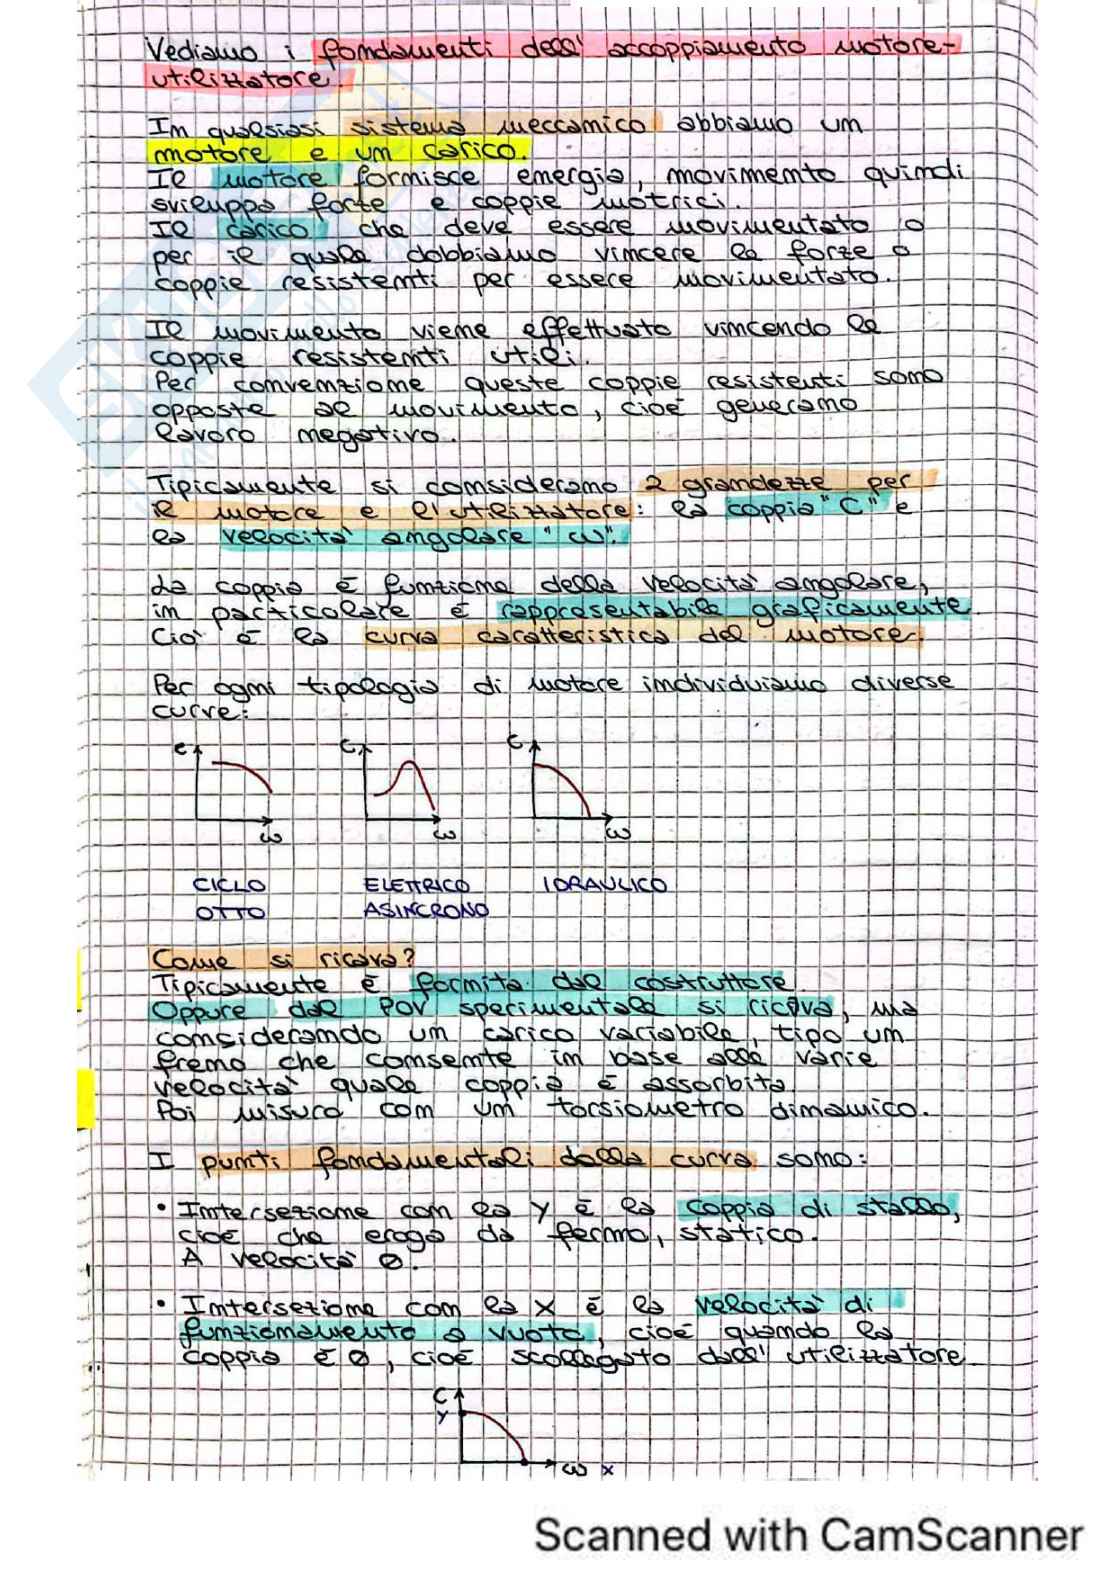 Vediamo i fondamenti dell' accoppiamento motore-
utilizzatore.
In qualsiasi sistema meccanico abbiamo un
motore e un carico.
Il motore fornisce energia, movimento quindi
sviluppa forze e coppie motrici.
Il carico che deve essere movimentato o
per il quale dobbiamo vincere le forze o
coppie resistenti per essere movimentato.
Il movimento viene effettuato vincendo le
coppie resistenti utili.
Per convenzione queste coppie resistenti sono
opposte al movimento, cioè generano
lavoro negativo.
Tipicamente si considerano 2 grandezze per
il motore e l'utilizzatore: la coppia "C" e
la velocità angolare "ω".
La coppia è funzione della velocità angolare,
in particolare è rappresentabile graficamente.
Ciò è la curva caratteristica del motore.
Per ogni tipologia di motore individuiamo diverse
curve:
C C C
ω ω ω
CICLO ELETTRICO IDRAULICO
OTTO ASINCRONO
Come si ricava?
Tipicamente è fornita dal costruttore.
Oppure dal POV sperimentale si ricava, ma
considerando un carico variabile, tipo un
freno che consente in base alle varie
velocità quale coppia è assorbita.
Poi misuro con un torsiometro dinamico.
I punti fondamentali della curva sono:
• Intersezione con la Y è la coppia di stallo,
cioè che eroga da fermo, statico.
A velocità 0.
• Intersezione con la X è la velocità di
funzionamento a vuoto, cioè quando la
coppia è 0, cioè scollegato dall' utilizzatore
C
Y
ω X
Scanned with CamScanner